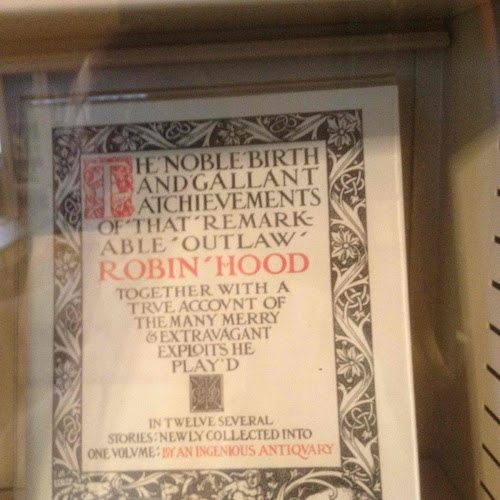 THE NOBLE BIRTH
AND GALLANT
ATCHIEVEMENTS
OF THAT REMARK-
ABLE OUTLAW
ROBIN HOOD
TOGETHER WITH A
TRVE ACCOVNT OF
THE MANY MERRY
& EXTRAVAGANT
EXPLOITS HE
PLAY'D
IN TWELVE SEVERAL
STORIES: NEWLY COLLECTED INTO
ONE VOLVME: BY AN INGENIOUS ANTIQVARY